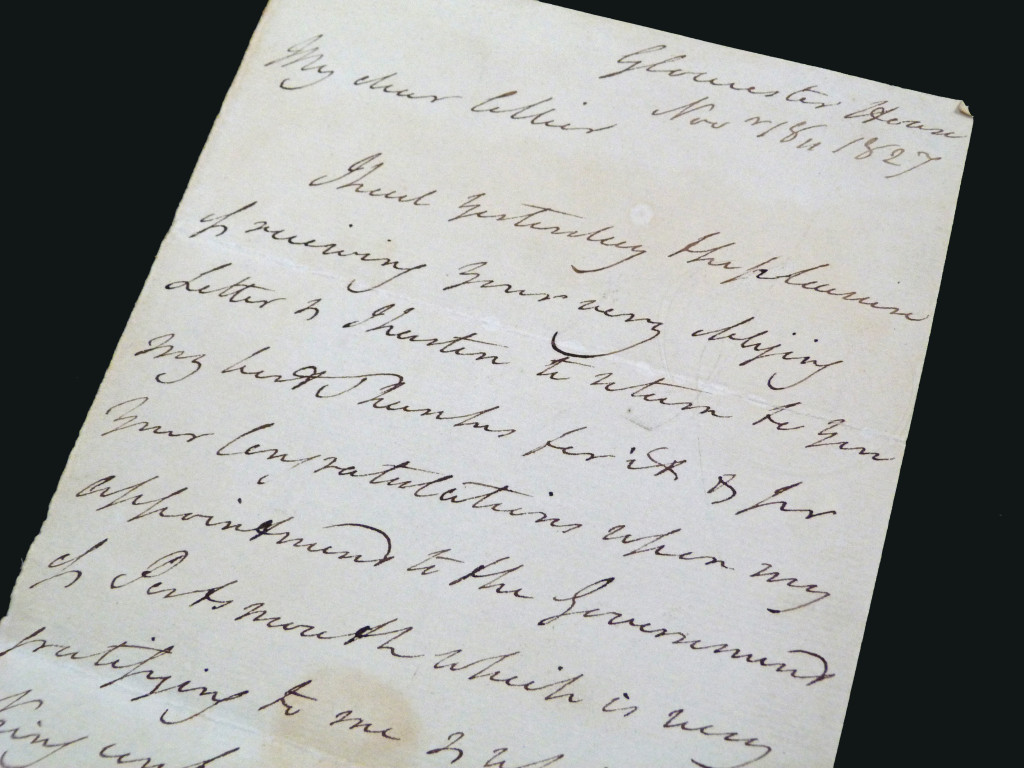 Gloucester House
Nov r 18th 1827
My dear Collier
I had yesterday the pleasure
of receiving your very obliging
Letter & I hasten to return to you
my best Thanks for it & for
your Congratulations upon my
appointment to the Government
of Portsmouth which is very
gratifying to me &
King